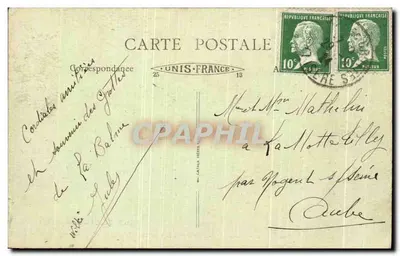 CARTE POSTALE
Correspondance
UNIS-FRANCE
RÉPUBLIQUE FRANÇAISE
10c
RÉPUBLIQUE FRANÇAISE
10c
Cordiales amitiés
et souvenir des Grottes
de La Balme
Jules
CPARAMA
M et Mme Mathelin
a La Motte Tilly
par Nogent s/Seine
Aube